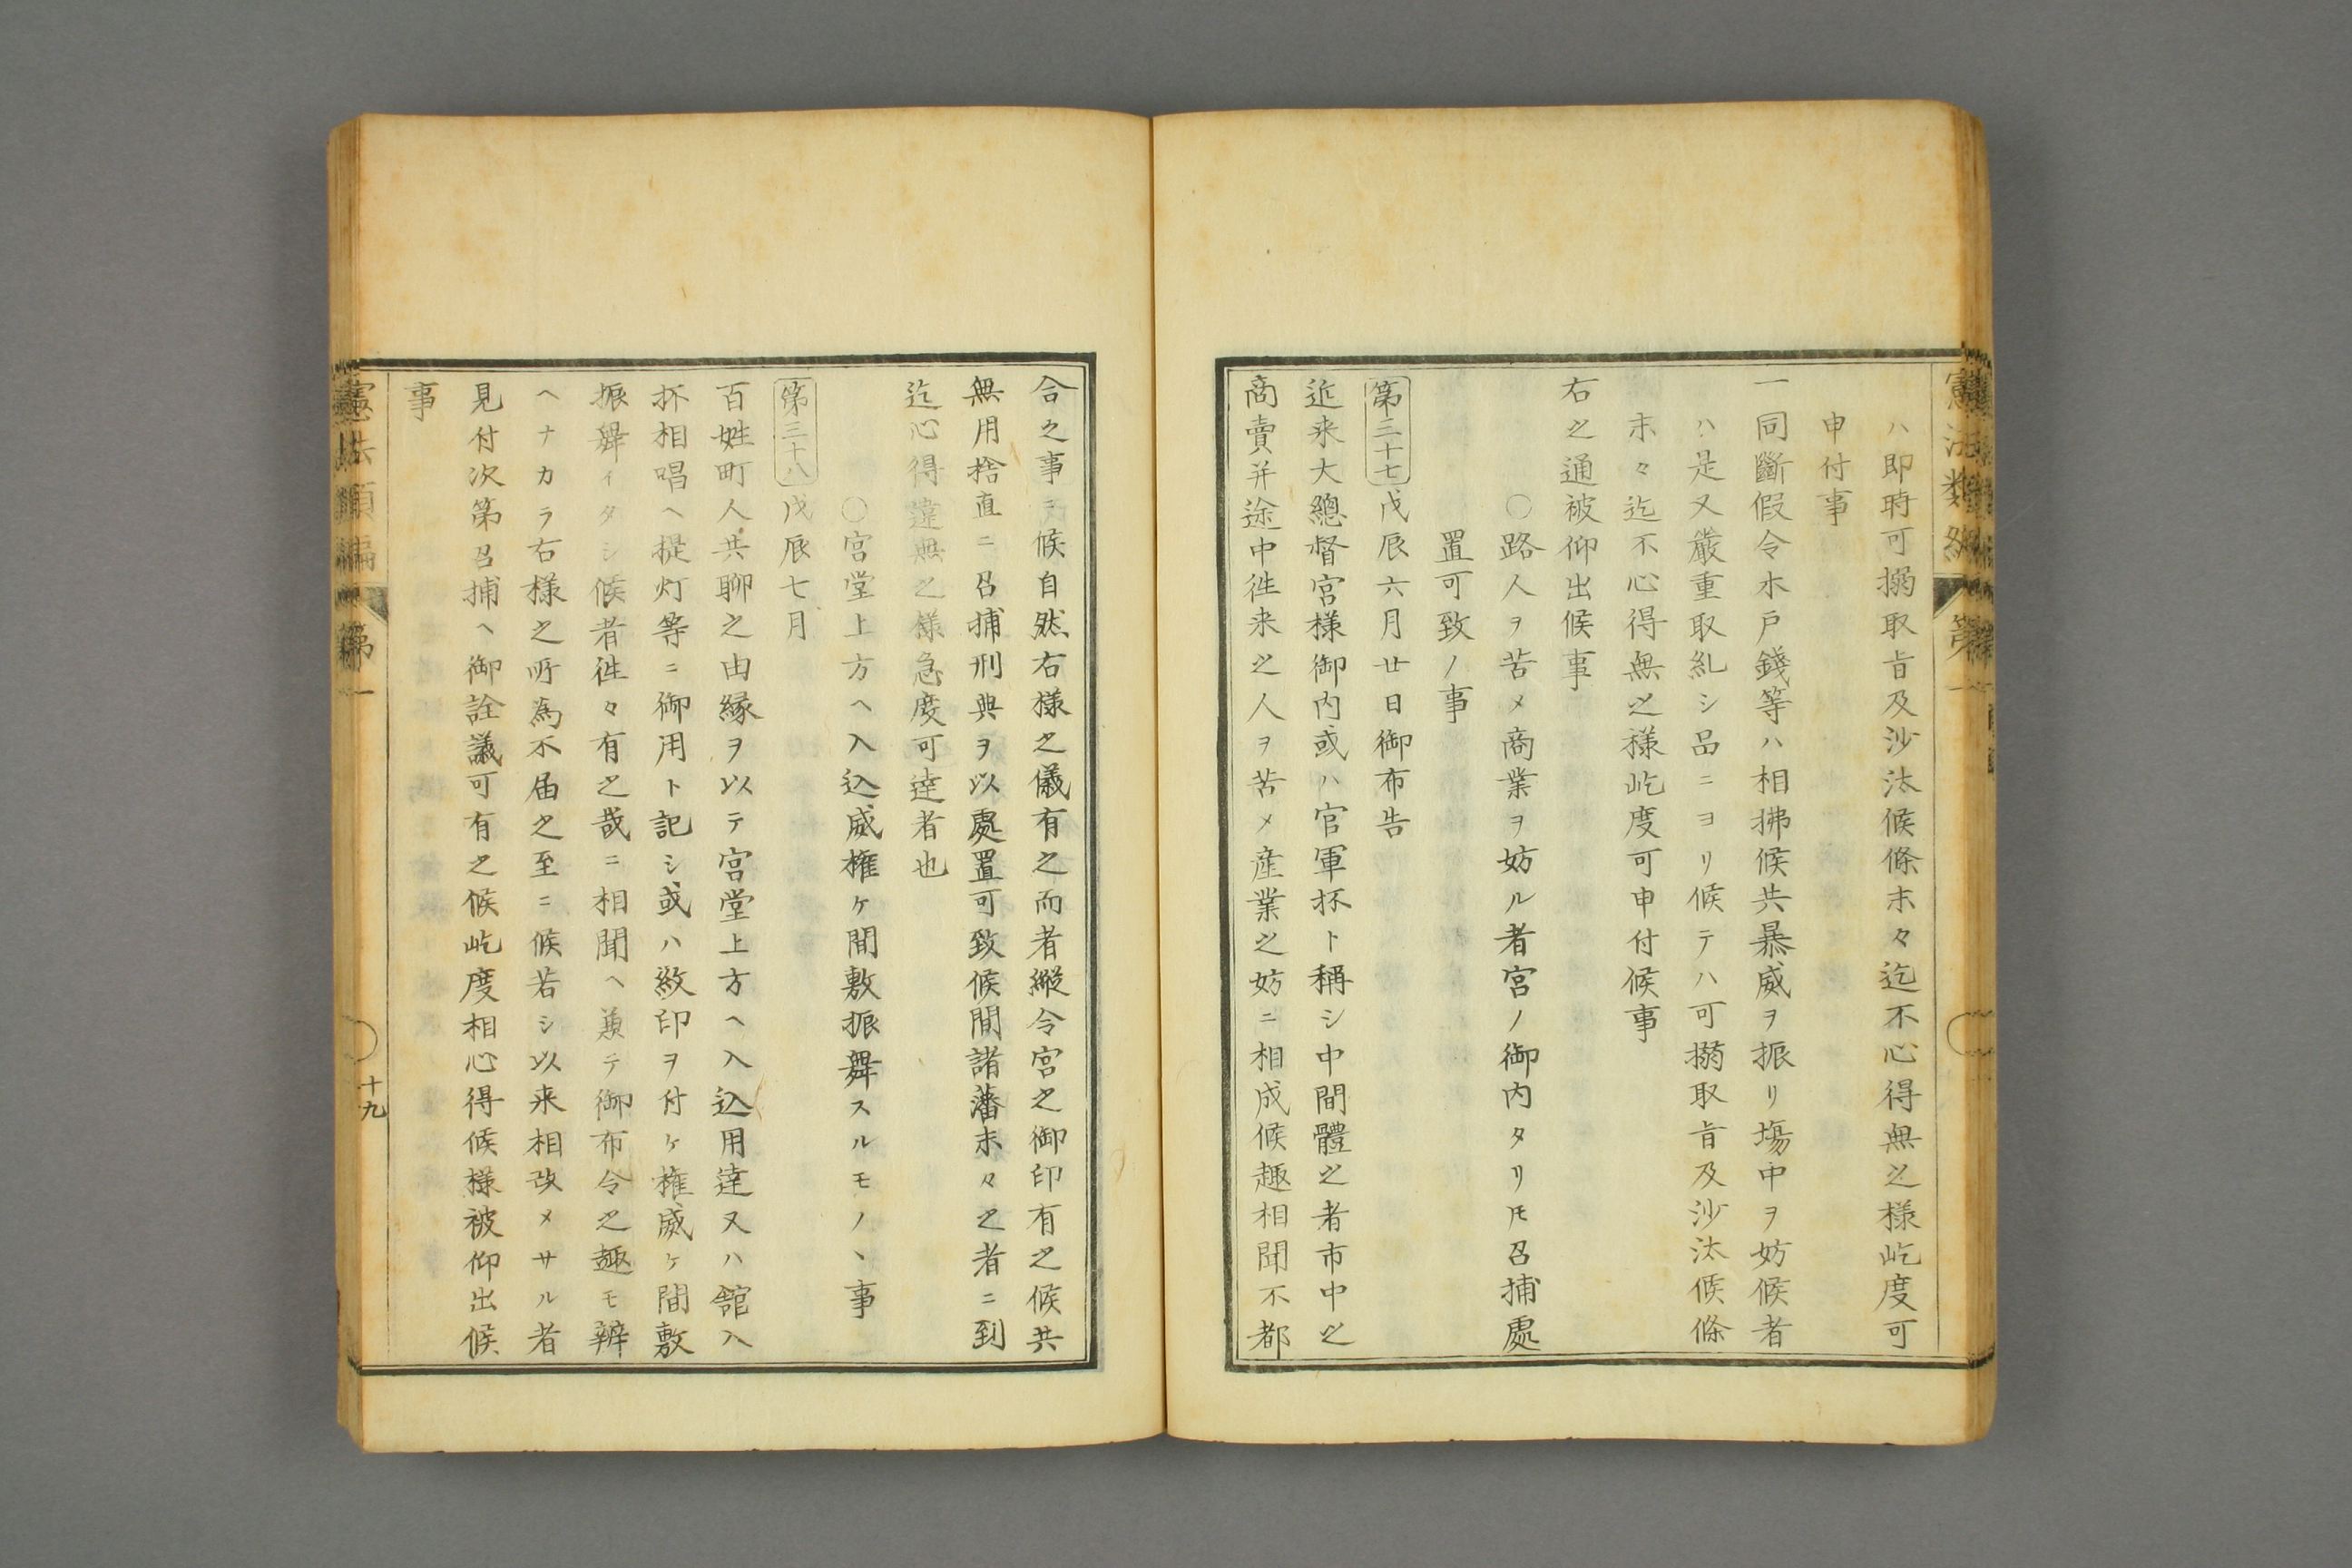 ハ即時可搦取旨及沙汰候條末々迄不心得無之様屹度可
申付事
一同斷假令木戸錢等ハ相拂候共暴威ヲ振リ塲中ヲ妨候者
ハ是又嚴重取糺シ品ニヨリ候テハ可搦取旨及沙汰候條
末々迄不心得無之様屹度可申付候事
右之通被仰出候事
○路人ヲ苦メ商業ヲ妨ル者宮ノ御内タリ𪜈召捕處
置可致ノ事
第三十七戊辰六月廿日御布告
近来大總督宮様御内或ハ官軍抔ト稱シ中間體之者市中之
商賣并途中徃来之人ヲ苦メ産業之妨ニ相成候趣相聞不都
合之事ニ候自然右様之儀有之而者縱令宮之御印有之候共
無用捨直ニ召捕刑典ヲ以處置可致候間諸藩末々之者ニ到
迄心得違無之様急度可達者也
○宮堂上方ヘ入込威権ケ間敷振舞スルモノヽ事
第三十八戊辰七月
百姓町人共聊之由縁ヲ以テ宮堂上方ヘ入込用達又ハ舘入
抔相唱ヘ提灯等ニ御用ト記シ或ハ紋印ヲ付ケ権威ケ間敷
振舞イタシ候者徃々有之哉ニ相聞ヘ兼テ御布令之趣モ辨
ヘナカラ右様之所為不届之至ニ候若シ以来相改メサル者
見付次第召捕ヘ御詮議可有之候屹度相心得候様被仰出候
事
憲法類編 第一
十九